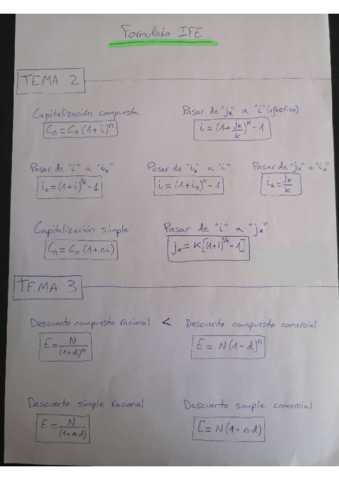 Formulario IFE
TEMA 2
Capitalización compuesta
Cn = C0 (1+i)^n
Pasar de "jk" a "i" (efectivo)
i = (1 + jk/k)^k - 1
Pasar de "i" a "ik"
ik = (1+i)^1/k - 1
Pasar de "ik" a "i"
i = (1 + ik)^k - 1
Pasar de "jk" a "ik"
ik = jk/k
Capitalización simple
Cn = C0 (1+ni)
Pasar de "i" a "jk"
jk = K[(1+i)^1/k - 1]
TEMA 3
Descuento compuesto racional < Descuento compuesto comercial
E = N/(1+d)^n
E = N(1-d)^n
Descuento simple racional
E = N/(1+n·d)
Descuento simple comercial
E = N(1-n·d)